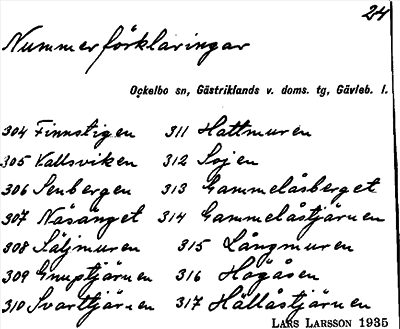 24
Nummerförklaringar
Ockelbo sn, Gästriklands v. doms. tg, Gävleb. l.
304 Finnstigen 311 Hattmuren
305 Vallsviken 312 Sojen
306 Stenbergen 313 Gammelåsberget
307 Näsänget 314 Gammelåstjärnen
308 Säljmuren 315 Långmuren
309 Gnuptjärnen 316 Högåsen
310 Svarttjärnen 317 Hällåstjärnen
LARS LARSSON 1935